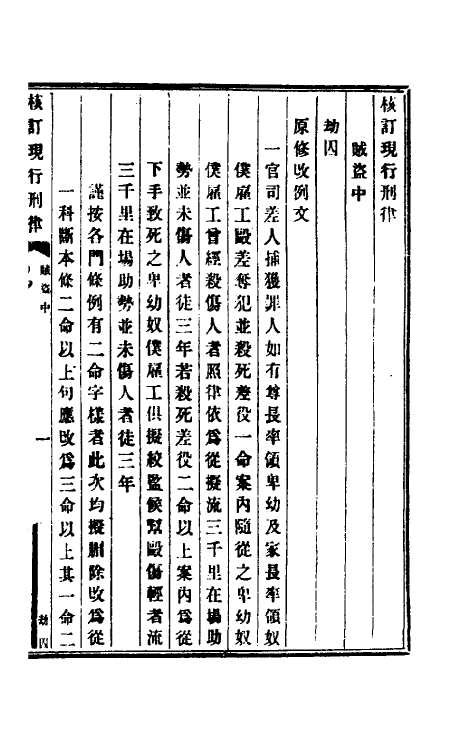 核訂現行刑律
賊盜中
劫囚
原修改例文
一官司差人捕獲罪人如有尊長率領卑幼及家長率領奴
僕雇工毆差奪犯並殺死差役一命案內隨從之卑幼奴
僕雇工曾經殺傷人者照律依爲從擬流三千里在場助
勢並未傷人者徒三年若殺死差役二命以上案內爲從
下手致死之卑幼奴僕雇工俱擬絞監候幫毆傷輕者流
三千里在場助勢並未傷人者徒三年
謹按各門條例有二命字樣者此次均擬刪除改爲從
一科斷本條二命以上句應改爲三命以上其一命二
核訂現行刑律
賊盜中
一
劫囚